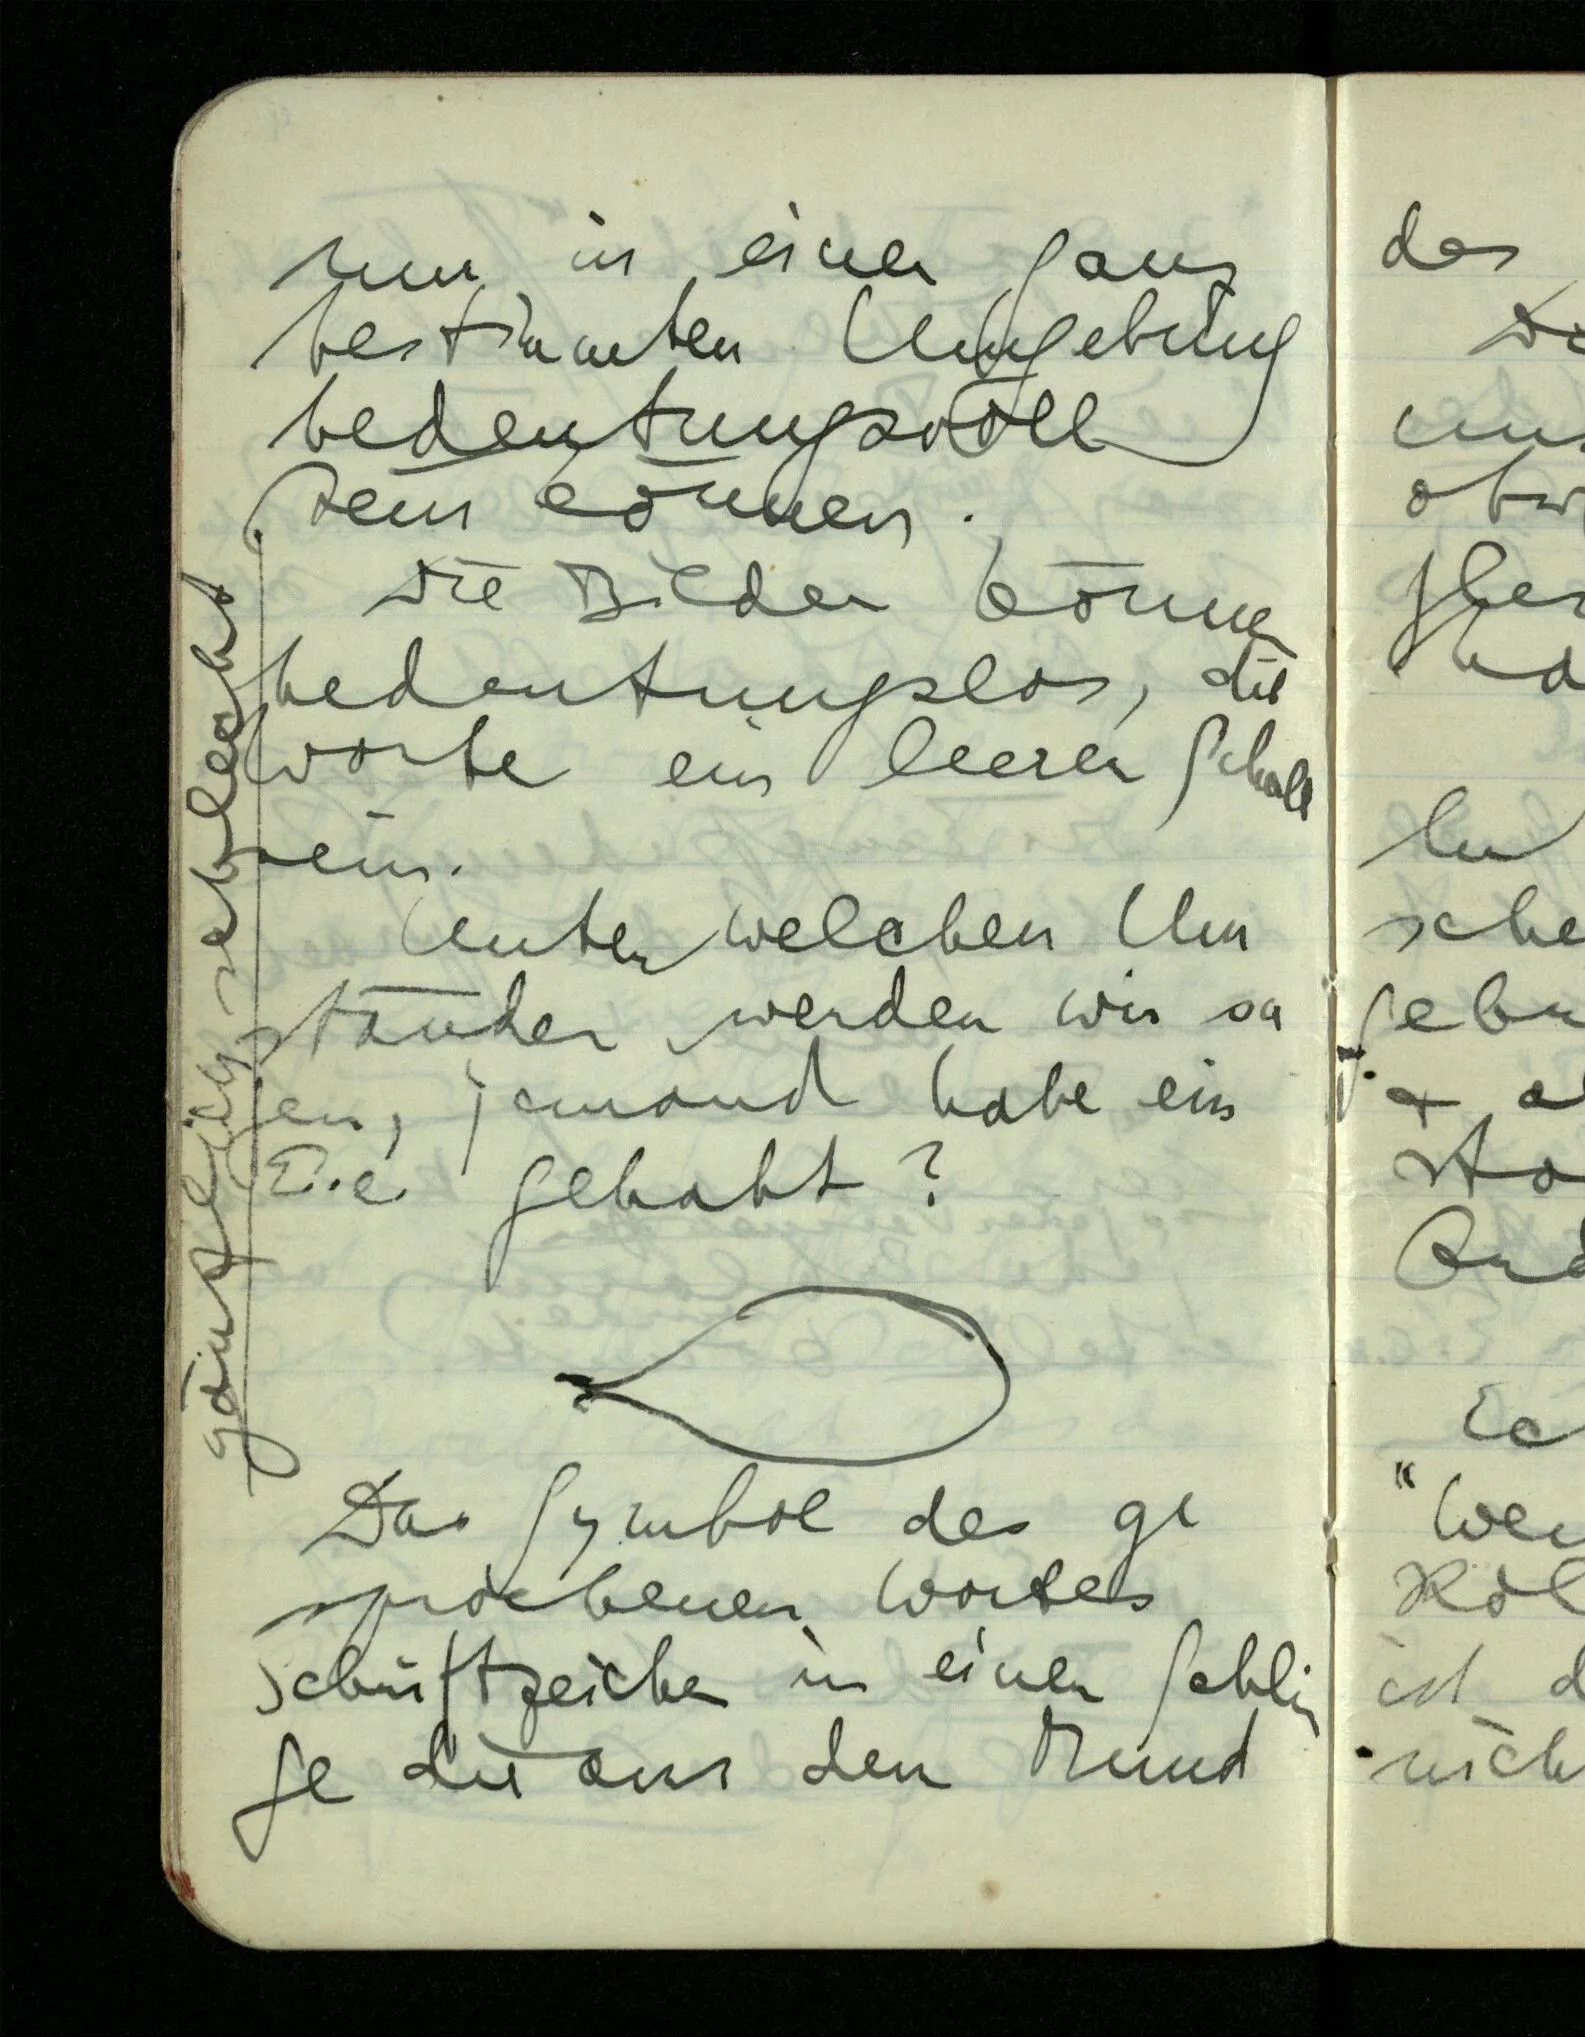 nur in einer ganz
bestimmten Umgebung
bedeutungsvoll
sein können.
Die Bilder können
bedeutungslos, die
Worte ein leerer Schall
sein.
Unter welchen Um
ständen werden wir sa
gen, jemand habe ein
E.e. gehabt?
Das Symbol des ge
sprochenen Wortes
Schriftzeichen in einer Schlin
ge die aus dem Mund
gänzlich schlecht
das
Di
uns
obw
ha
sche
gebr
+ al
"Wen
ist d
nich